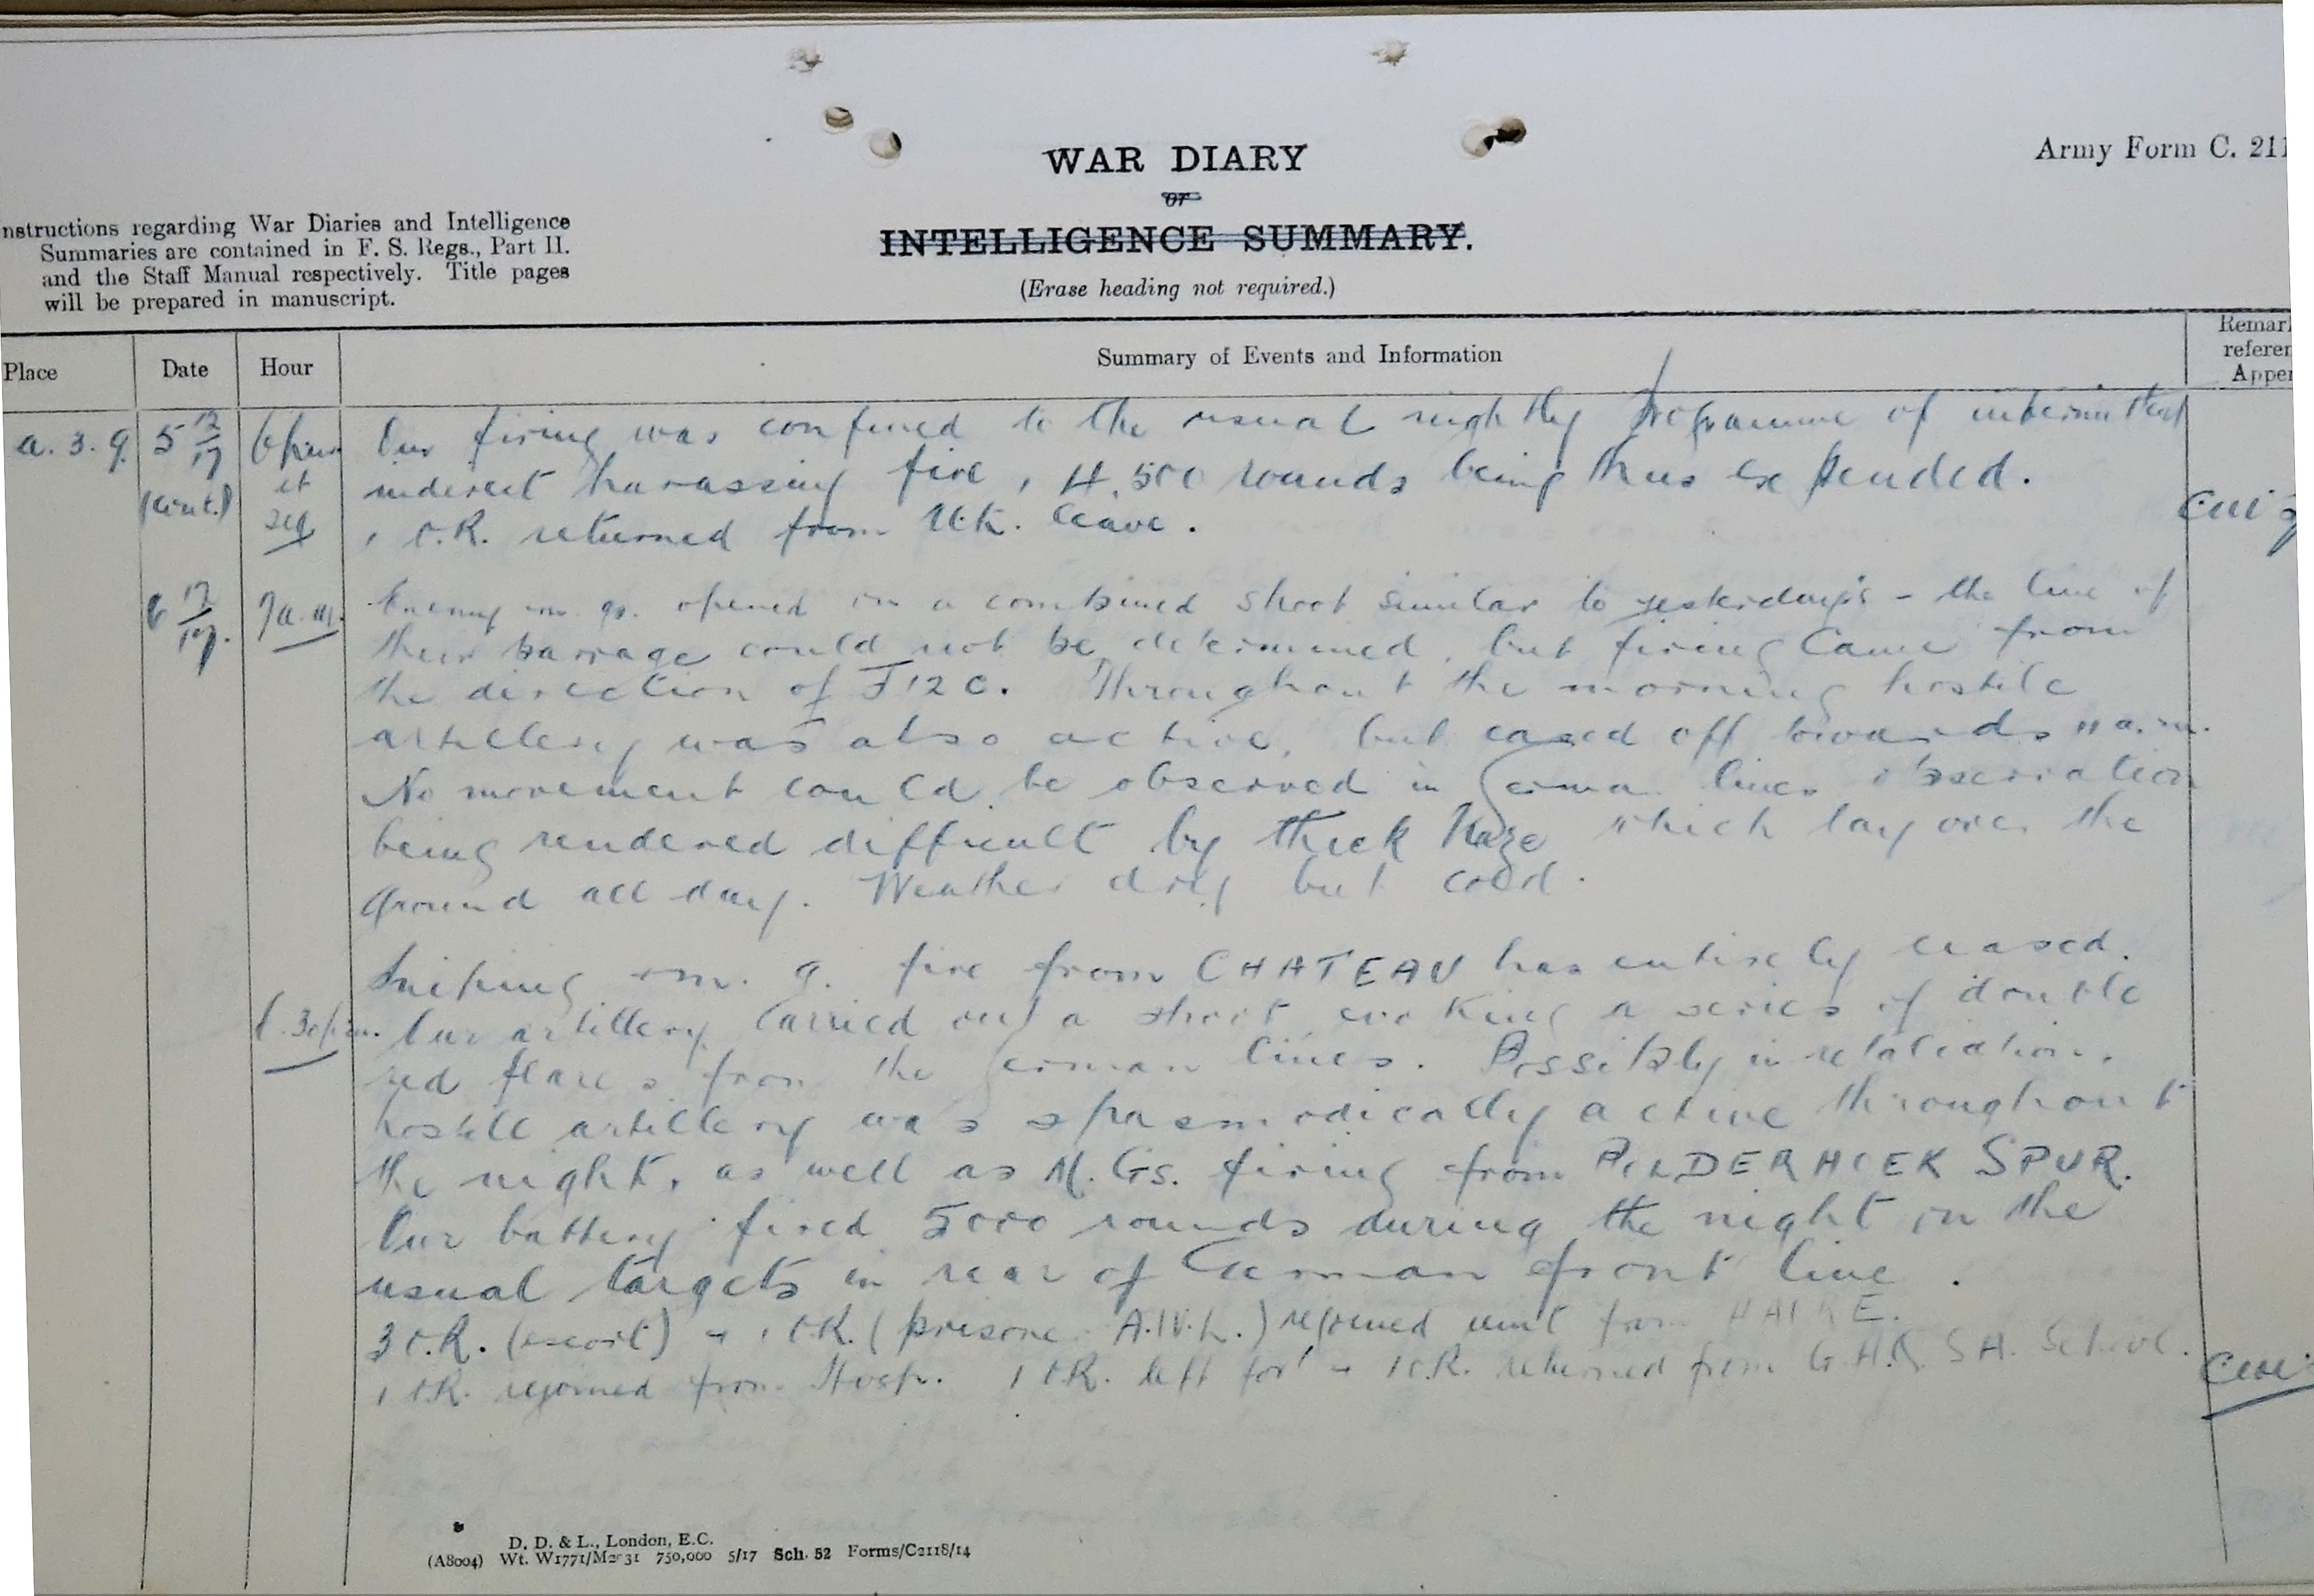 WAR DIARY
or
INTELLIGENCE SUMMARY.
(Erase heading not required.)
Army Form C. 211
nstructions regarding War Diaries and Intelligence
Summaries are contained in F. S. Regs., Part II.
and the Staff Manual respectively. Title pages
will be prepared in manuscript.
Place Date Hour Summary of Events and Information
Remar
referen
Appen
a. 3. 9. 5 12/17 (cont.) 6pm et seq Our firing was confined to the usual nightly programme of intermittent
indirect harassing fire, 4,500 rounds being thus expended.
1 O.R. returned from U.K. leave.
6 12/17. 7a.m. Enemy m. gs. opened in a combined shoot similar to yesterday's - the line of
their barrage could not be determined, but firing came from
the direction of J12c. Throughout the morning hostile
artillery was also active, but eased off towards 11 a.m.
No movement could be observed in German lines observation
being rendered difficult by thick haze which lay over the
ground all day. Weather dry but cold.
Sniping m. g. fire from CHATEAU has entirely ceased.
.30pm. Our artillery carried out a shoot evoking a series of double
red flares from the German lines. Possibly in retaliation,
hostile artillery was spasmodically active throughout
the night, as well as M. Gs. firing from POLDERHOEK SPUR.
Our battery fired 5000 rounds during the night on the
usual targets in rear of German front line.
3 O.R. (escort) + 1 O.R. (prisoner A.W.L.) rejoined unit from HAVRE.
1 O.R. rejoined from Hosp. 1 O.R. left for + 1 O.R. returned from G.H.Q. S.A. School.
D. D. & L., London, E.C.
(A8004) Wt. W1771/M2031 750,000 5/17 Sch. 52 Forms/C2118/14